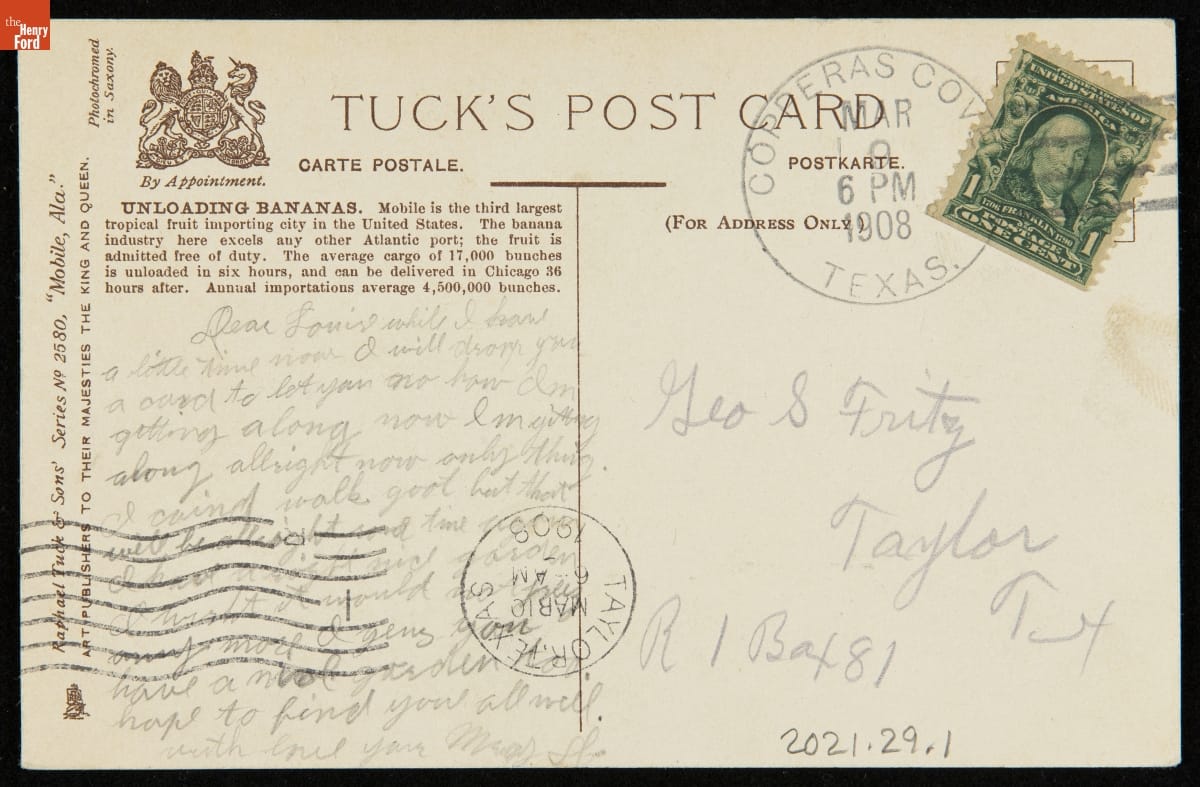 the
Henry
Ford
Photochromed
in Saxony.
TUCK'S POST CARD
CARTE POSTALE.
POSTKARTE.
By Appointment.
(FOR ADDRESS ONLY)
UNLOADING BANANAS. Mobile is the third largest
tropical fruit importing city in the United States. The banana
industry here excels any other Atlantic port; the fruit is
admitted free of duty. The average cargo of 17,000 bunches
is unloaded in six hours, and can be delivered in Chicago 36
hours after. Annual importations average 4,500,000 bunches.
Raphael Tuck & Sons' Series No 2580, "Mobile, Ala."
ART PUBLISHERS TO THEIR MAJESTIES THE KING AND QUEEN.
COPPERAS COVE
MAR
9
6 PM
1908
TEXAS.
UNITED STATES OF
AMERICA
1706 FRANKLIN 1790
POSTAGE
1 ONE CENT 1
Dear Louise while I have
a little time now I will drop you
a card to let you no how Im
getting along now Im getting
along allright now only thing
I coind walk goot but that
will be allright some time
I a nice garden
I it would not
any more I you
have a nice garden
hope to find you all well.
with love your
TAYLOR, TEXAS
MAR 10
6 AM
1908
R
Geo S Fritz
Taylor
Tex
R 1 Box 81
2021.29.1